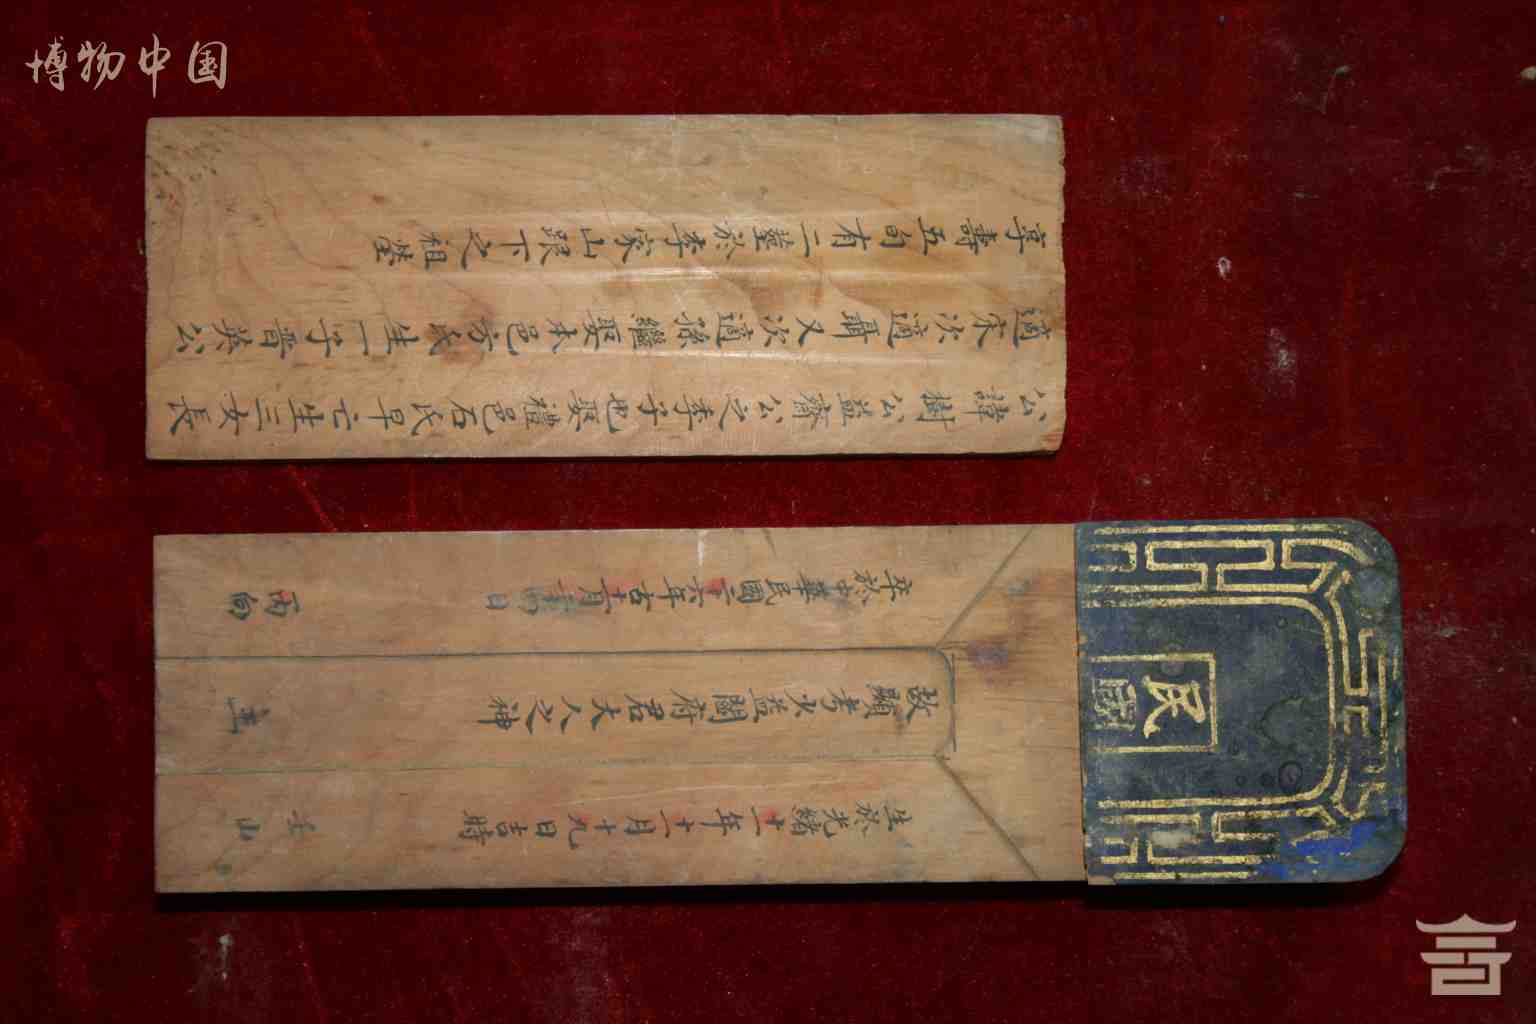 博物中国
公諱樹公益齋公之季子也娶禮邑石氏早亡生三女長
適宋次適聶又次適孫繼娶本邑方氏生一子晋英公
享壽五旬有二塟於李家山跟下之祖塋
民國
生於光緒十一年十二月十九日吉時 壬山
故顯考少益閻府君夫人之神主
卒於中華民國二十六年古十二月初日 丙向